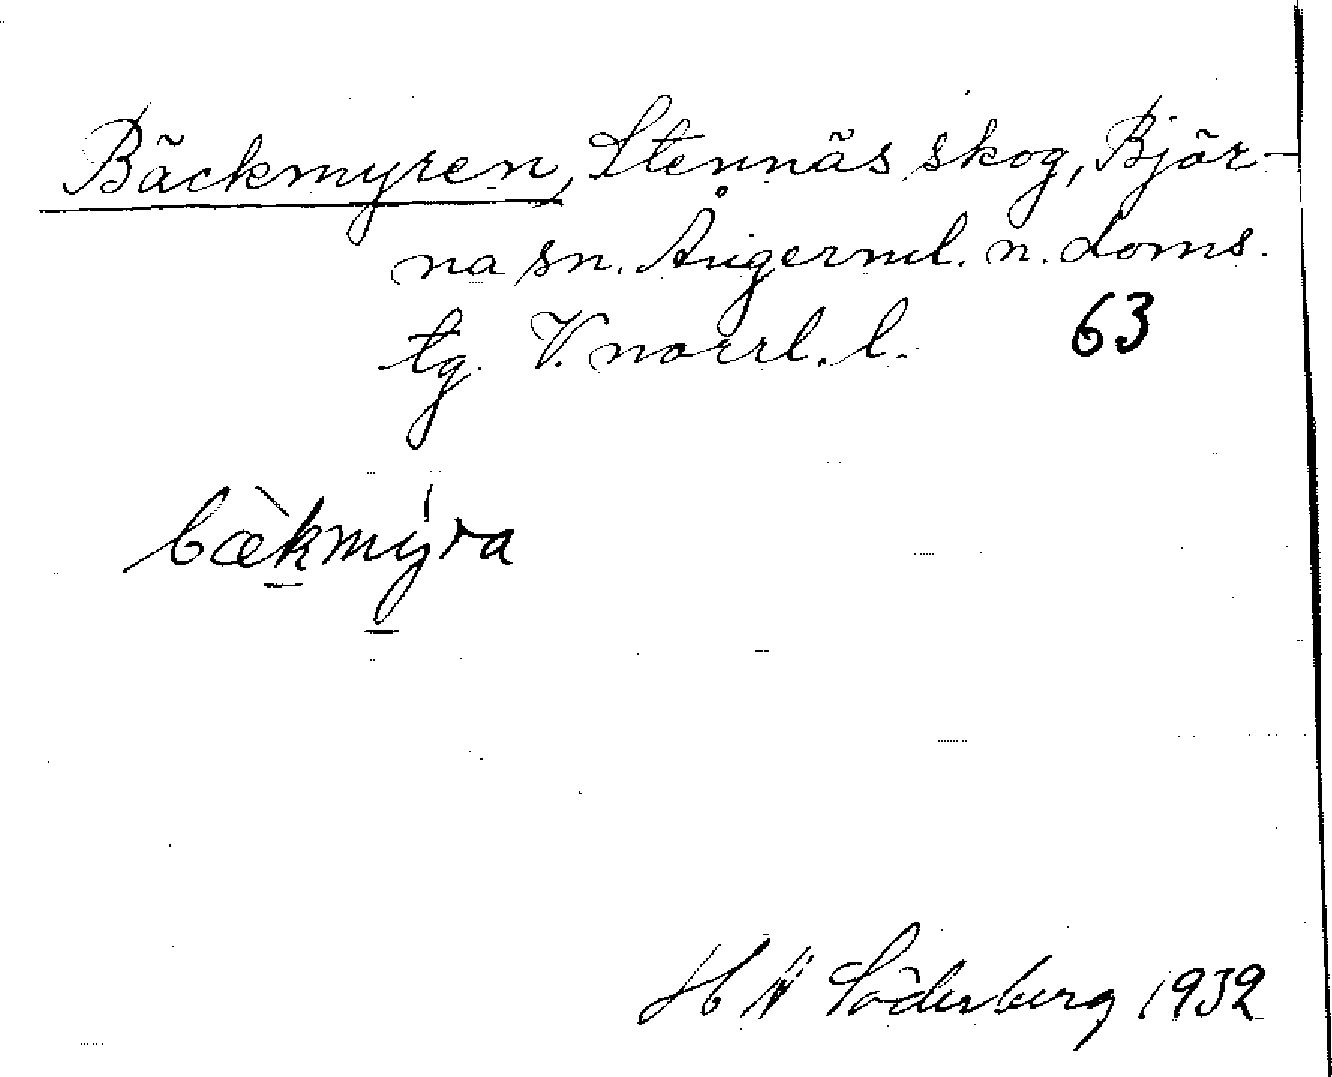 Bäckmyren, Stennäs skog, Björ-
na sn. Ångerml. n. doms.
tg. V. norrl. l. 63
bæ̀kmýra
H N Söderberg 1932